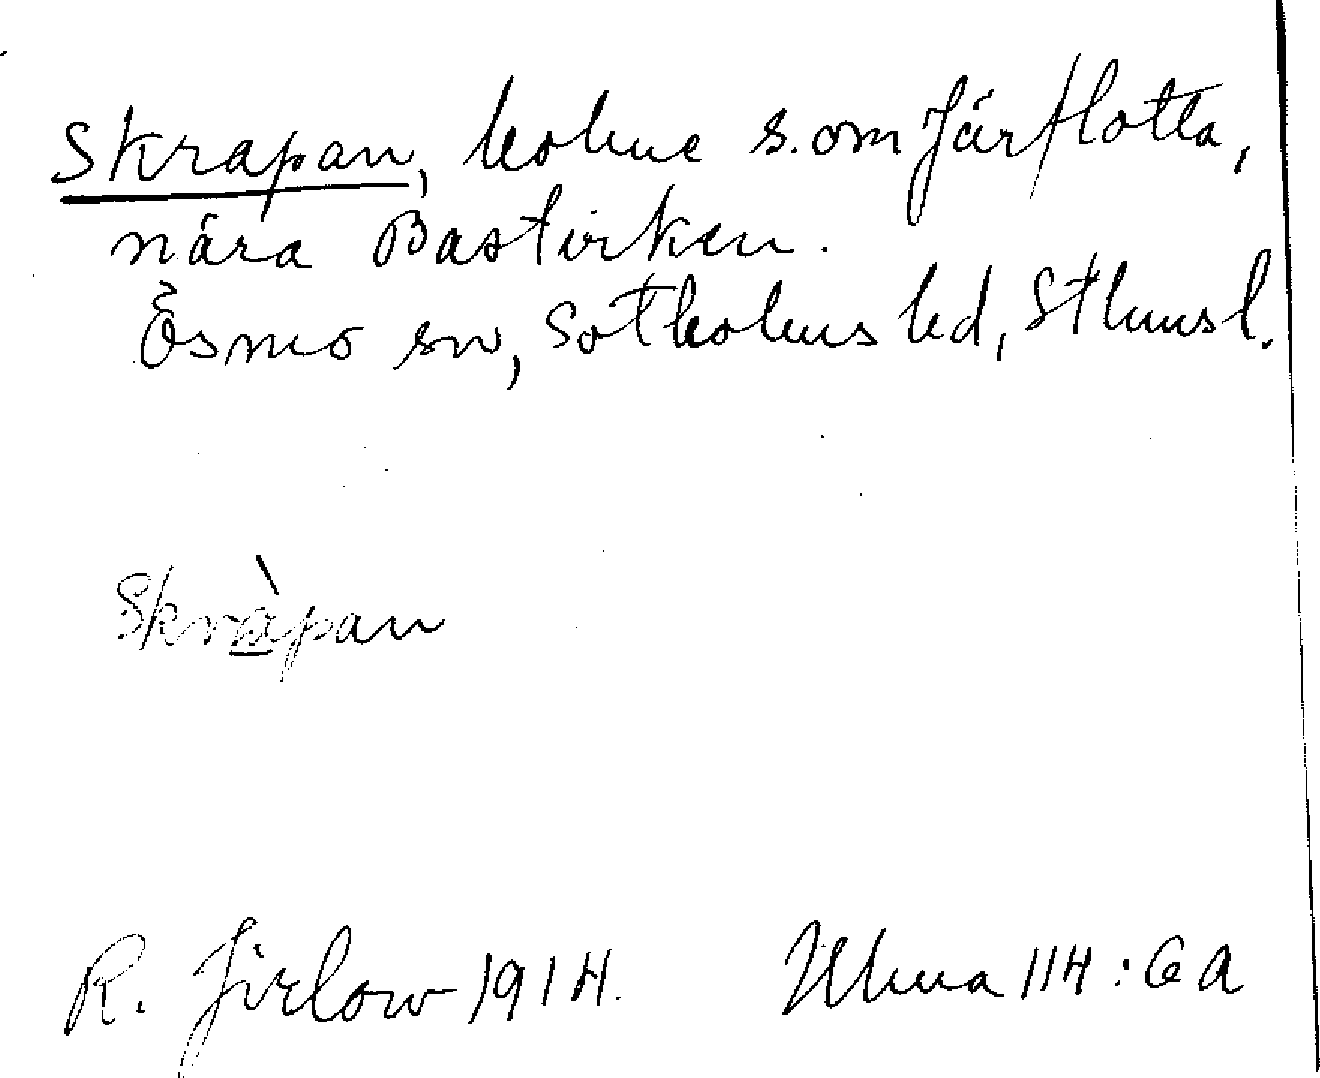 Skrapan, holme s. om Järflotta,
nära Bastvrken.
Ösmo sn, Sotholms hd, Sthmsl.
Skràpan
R. Jirlow 1914. Uhma 114:6A